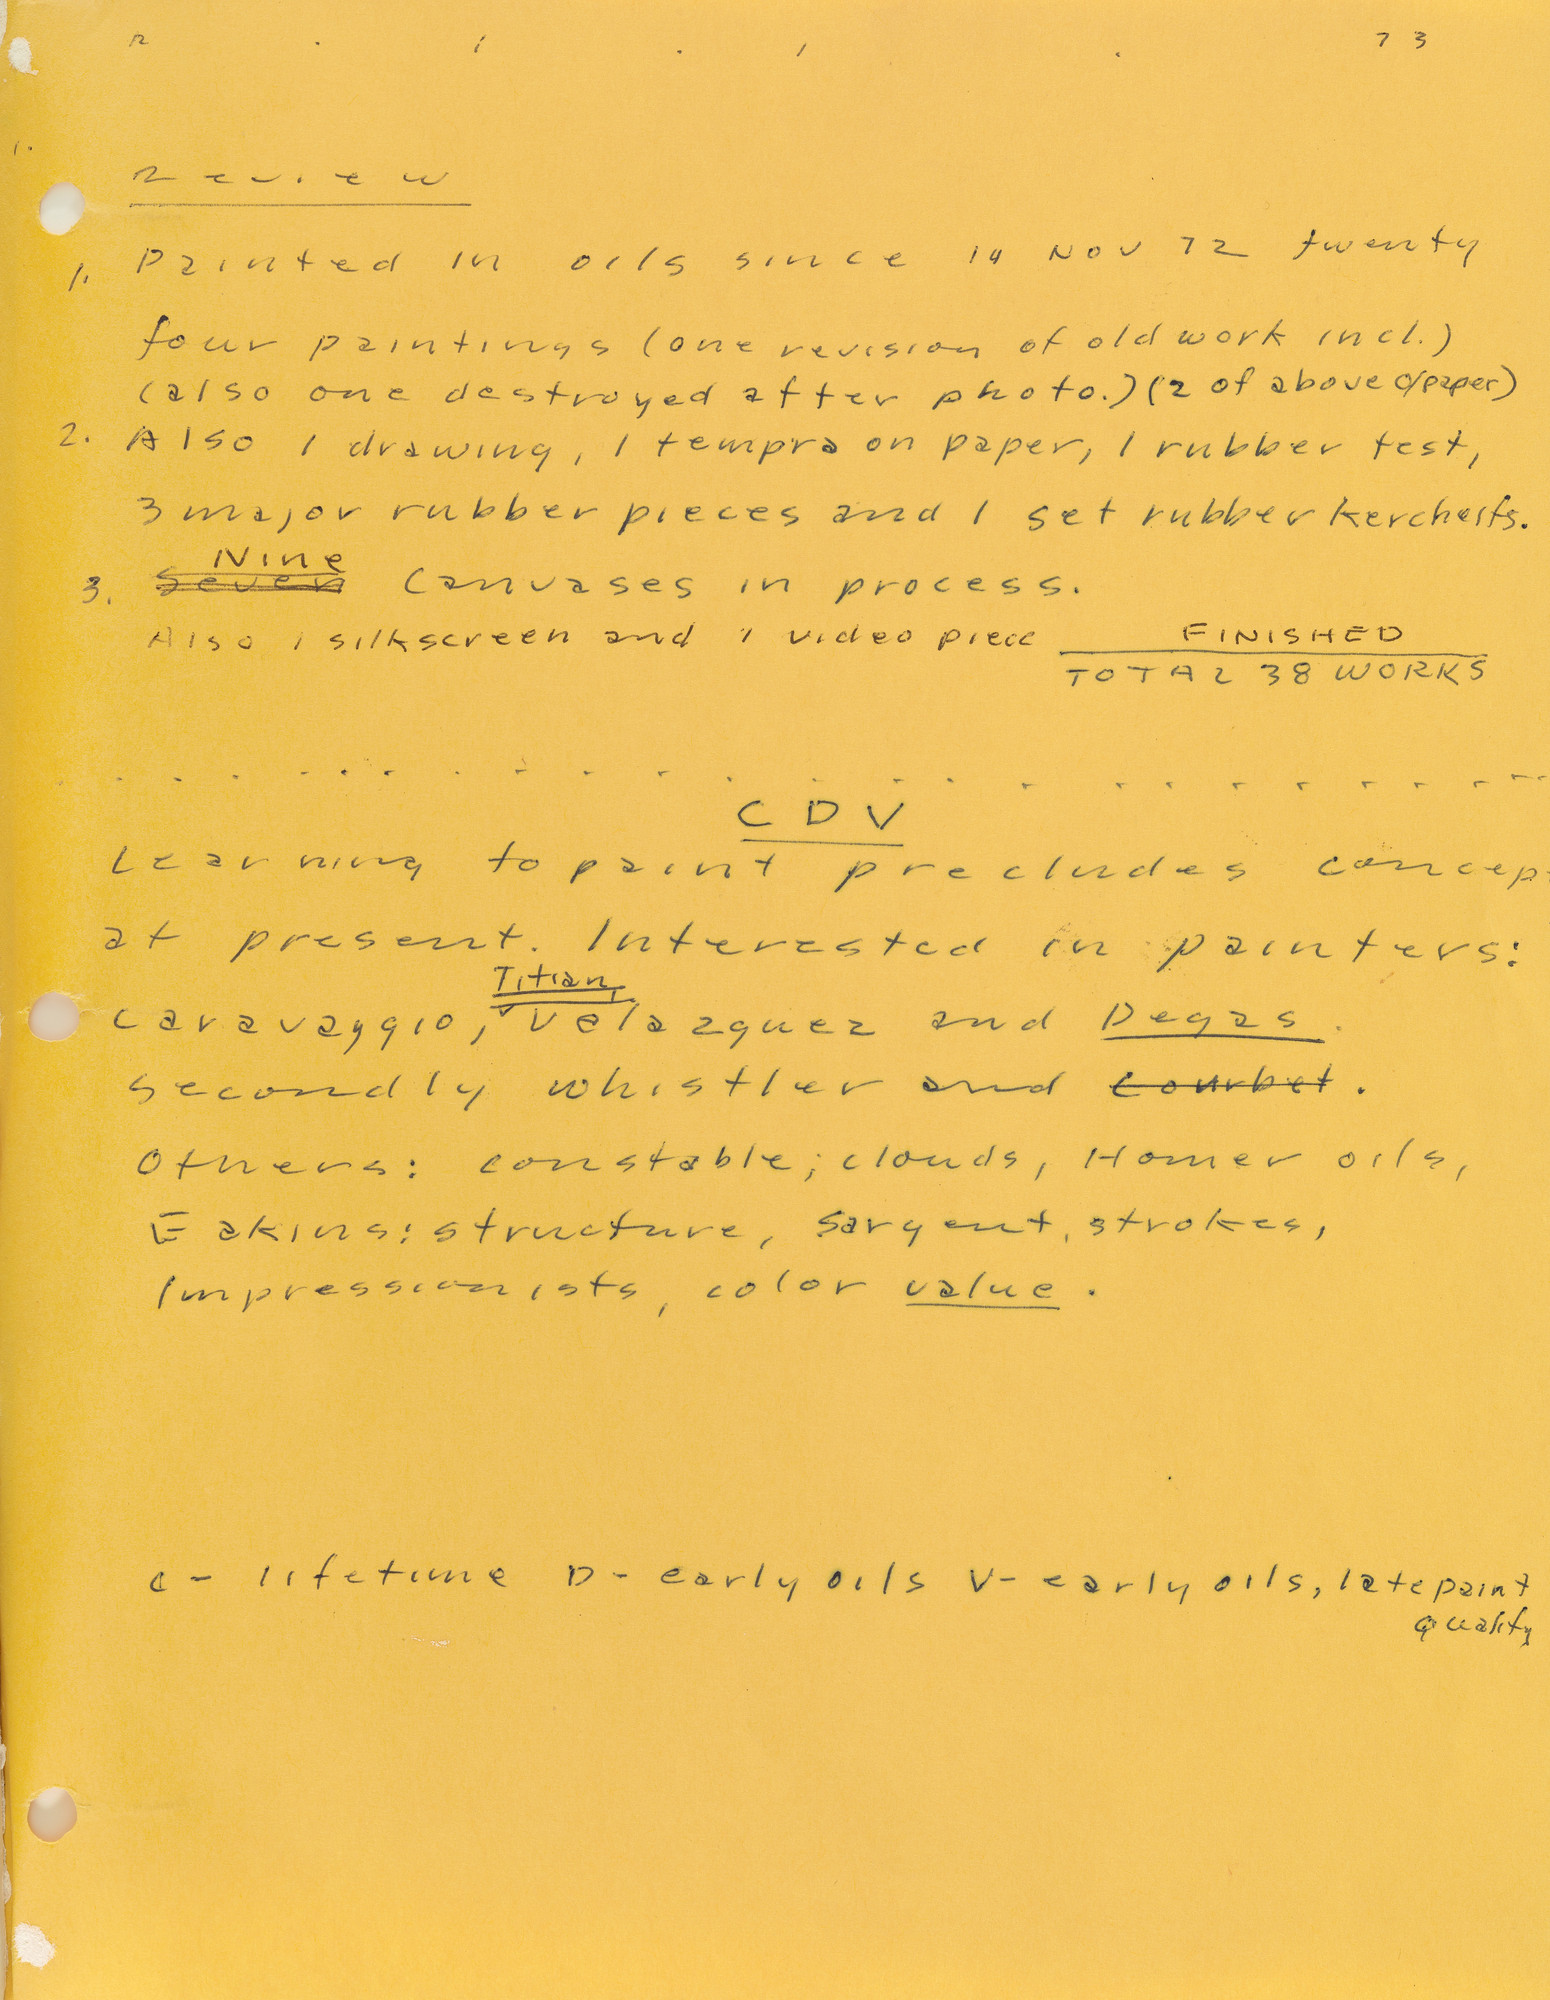 R . 1 . 1 . 73
1.
Review
1. Painted in oils since 14 Nov 72 twenty
four paintings (one revision of old work incl.)
(also one destroyed after photo.) (2 of above o/paper)
2. Also 1 drawing, 1 tempra on paper, 1 rubber test,
3 major rubber pieces and 1 set rubber kercheifs.
Nine
3. Seven Canvases in process.
Also 1 silkscreen and 1 video piece FINISHED
TOTAL 38 WORKS
CDV
Learning to paint precludes concep
at present. Interested in painters:
Titian,
Caravaggio, Velazquez and Degas.
Secondly whistler and Courbet.
Others: constable; clouds, Homer oils,
Eakins: structure, Sargent, strokes,
Impressionists, color value.
C - lifetime D - early oils V - early oils, late paint
quality